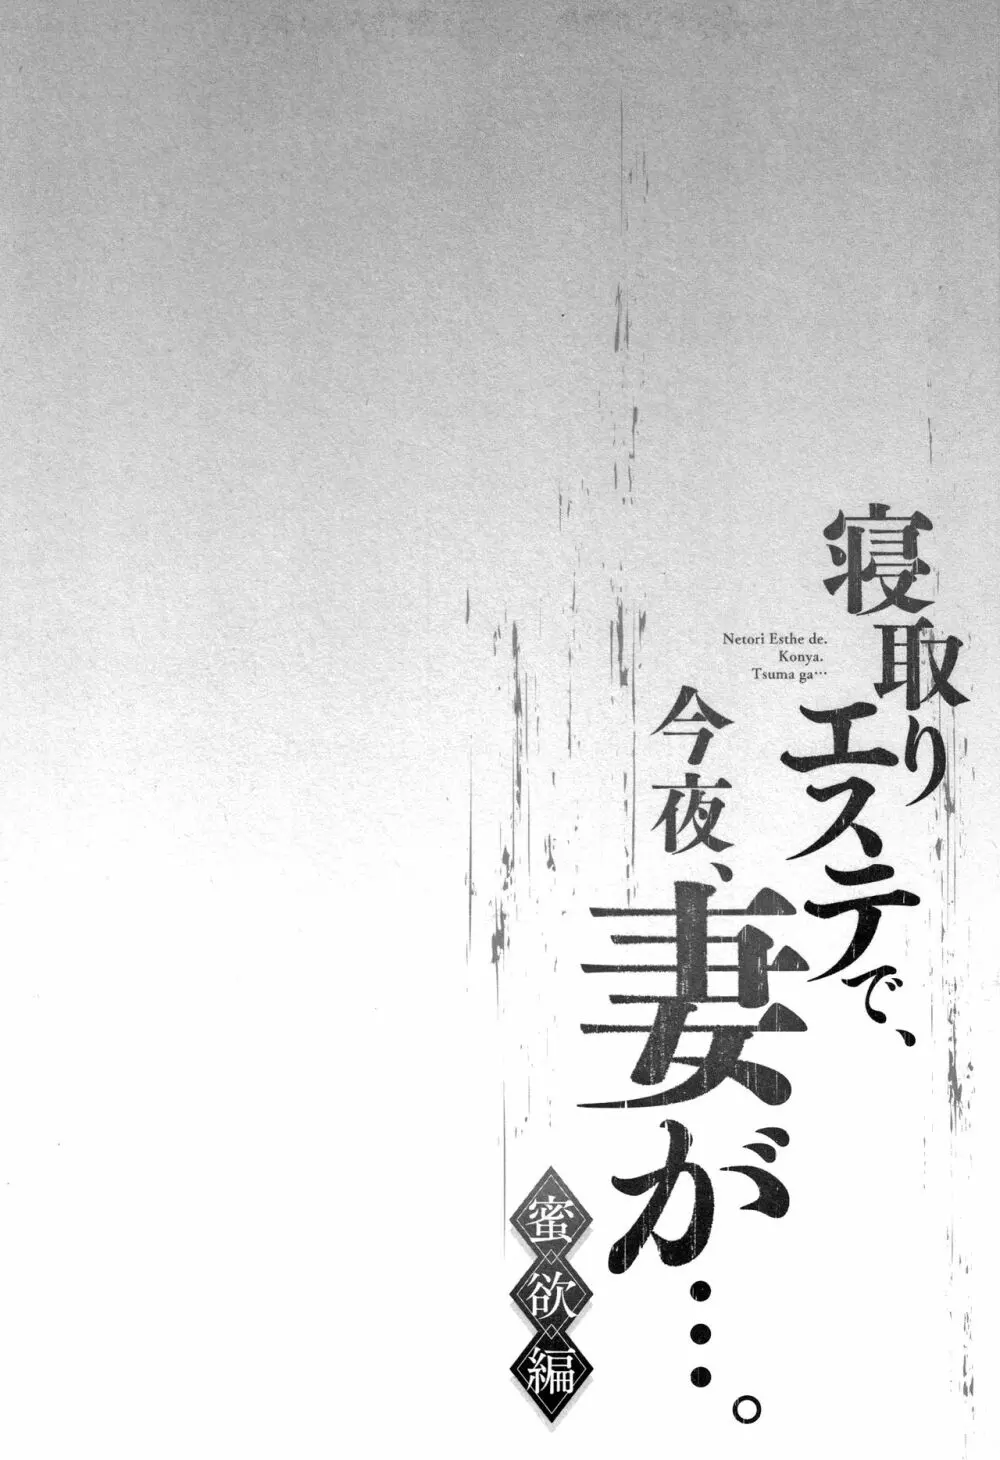 寝取り
エステで、
今夜、
妻が…。
Netori Esthe de.
Konya.
Tsuma ga…
蜜欲編